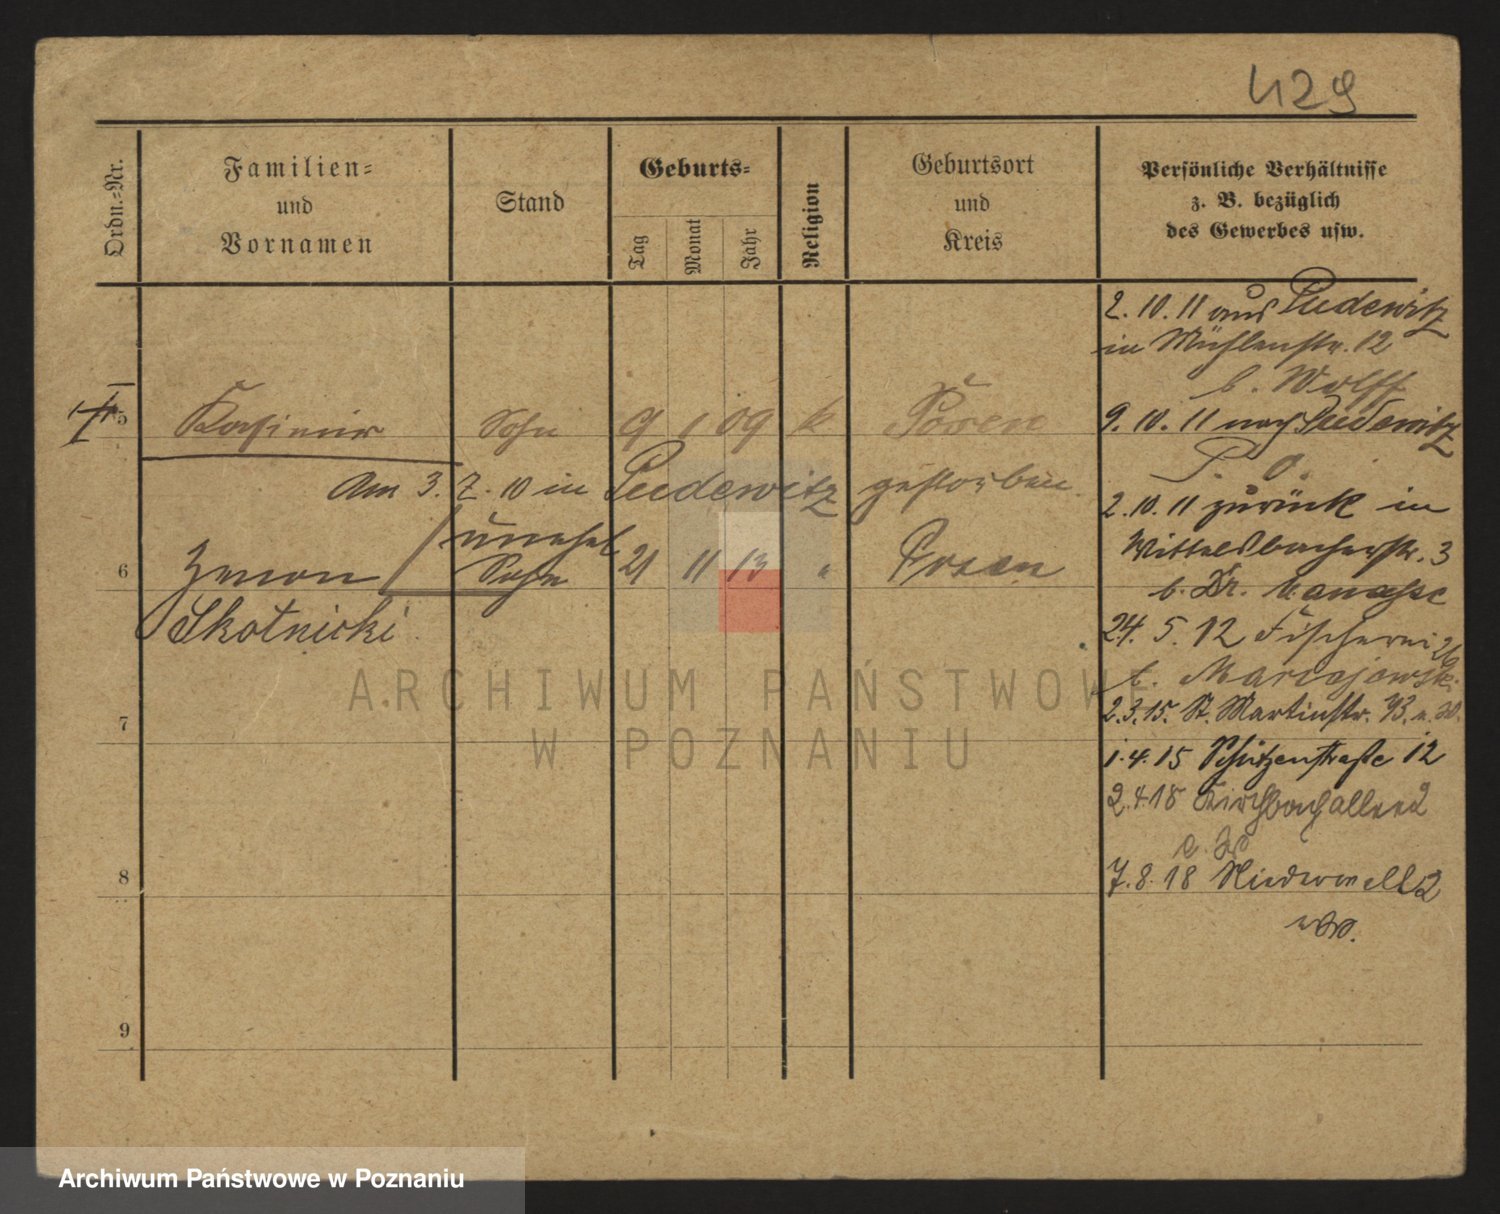 429
Ordn.-Nr.
Familien-
und
Vornamen
Stand
Geburts-
Tag
Monat
Jahr
Religion
Geburtsort
und
Kreis
Persönliche Verhältnisse
z. B. bezüglich
des Gewerbes usw.
2. 10. 11 aus Pudewitz
in Mühlenstr. 12
b. Wolff
5 Kasimir Sohn 9 1 09 k Posen
9. 10. 11 nach Pudewitz
Am 3. 7. 10 in Pudewitz gestorben.
2. 10. 11 zurück in
Wittelsbacherstr. 3
unehel
6 Zenon Sohn 21 11 13 " Posen
b. Dr.
Skotnicki
24. 5. 12 Fischerei 26
b.
2.3.15. St. Martinstr.
7
1.4.15 Schützenstraße 12
2.4.18 Kirchbachallee 2
8
7.8.18 Niederwall 2
9
ARCHIWUM PAŃSTWOWE
W POZNANIU
Archiwum Państwowe w Poznaniu